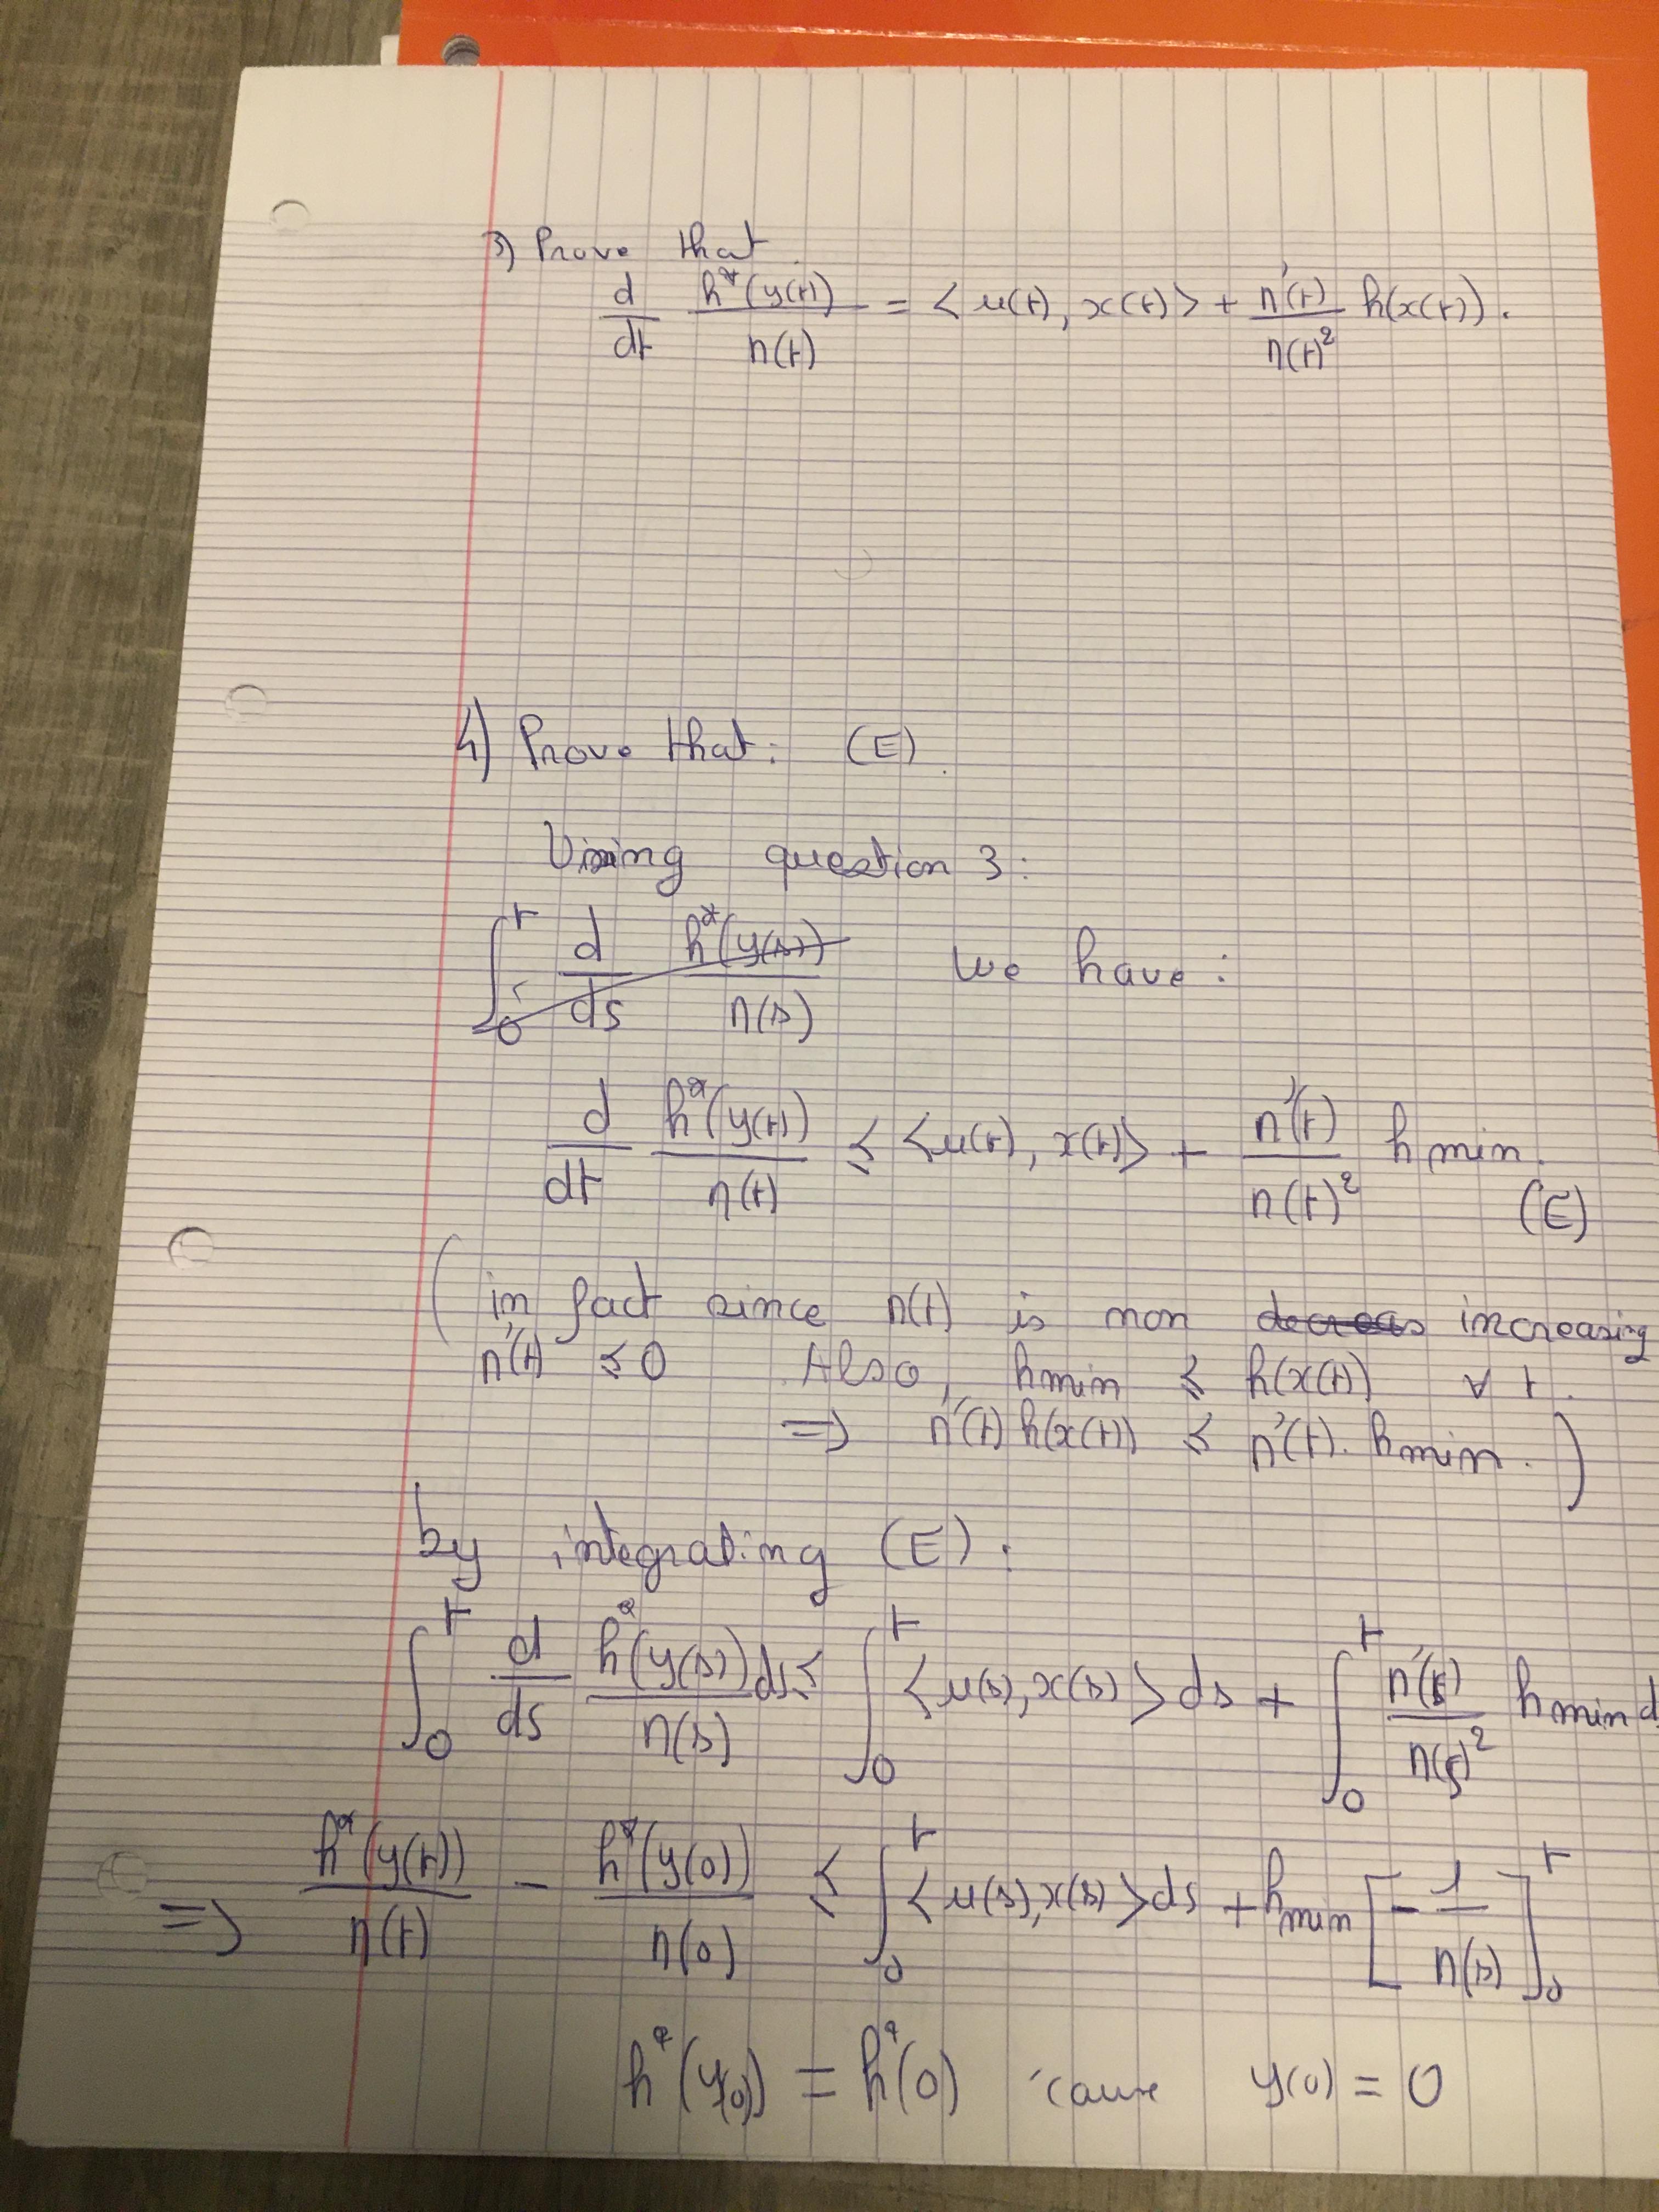 3) Prove that
d/dt h*(y(t))/η(t) = <u(t), x(t)> + η'(t)/η(t)² h(x(t)).
4) Prove that: (E).
Using question 3:
∫₀ᵗ d/ds h*(y(s))/η(s) we have:
d/dt h*(y(t))/η(t) ≤ <u(t), x(t)> + η'(t)/η(t)² hmin.
(E)
(in fact since η(t) is non decreas increasing
η'(t) ≤ 0 Also, hmin ≤ h(x(t)) ∀ t.
=> η'(t) h(x(t)) ≤ η'(t). hmin.)
by integrating (E).
∫₀ᵗ d/ds h*(y(s))/η(s) ds ≤ ∫₀ᵗ <u(s), x(s)> ds + ∫₀ᵗ η'(s)/η(s)² hmin d
=> h*(y(t))/η(t) - h*(y(0))/η(0) ≤ ∫₀ᵗ <u(s), x(s)> ds + hmin [-1/η(s)]₀ᵗ
h*(y(0)) = h*(0) 'cause y(0) = 0